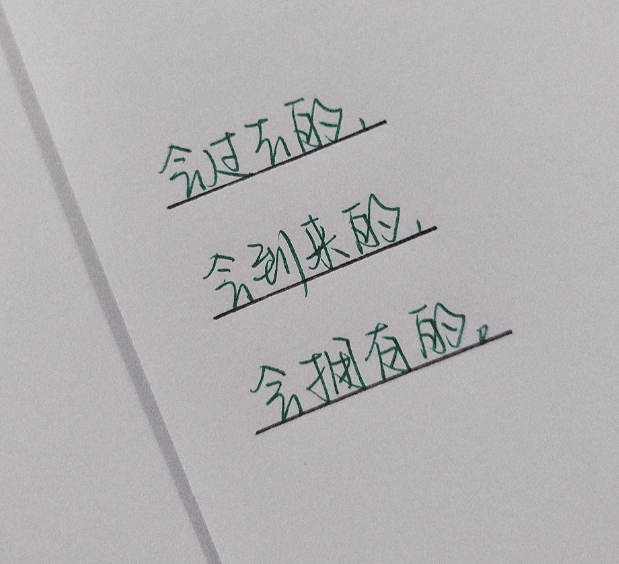 会过去的,
会到来的,
会拥有的。